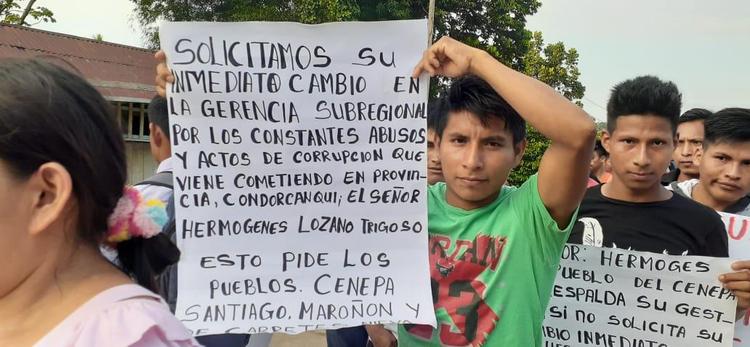 SOLICITAMOS SU
INMEDIATO CAMBIO EN
LA GERENCIA SUBREGIONAL
POR LOS CONSTANTES ABUSOS
Y ACTOS DE CORRUPCION QUE
VIENE COMETIENDO EN PROVIN-
CIA, CONDORCANQUI; EL SEÑOR
HERMOGENES LOZANO TRIGOSO
ESTO PIDE LOS
PUEBLOS. CENEPA
SANTIAGO. MAROÑON Y
23
OR: HERMOGES
PUEBLO DEL CENEPA
ESPALDA SU GEST-
SI NO SOLICITA SU
BIO INMEDIATO